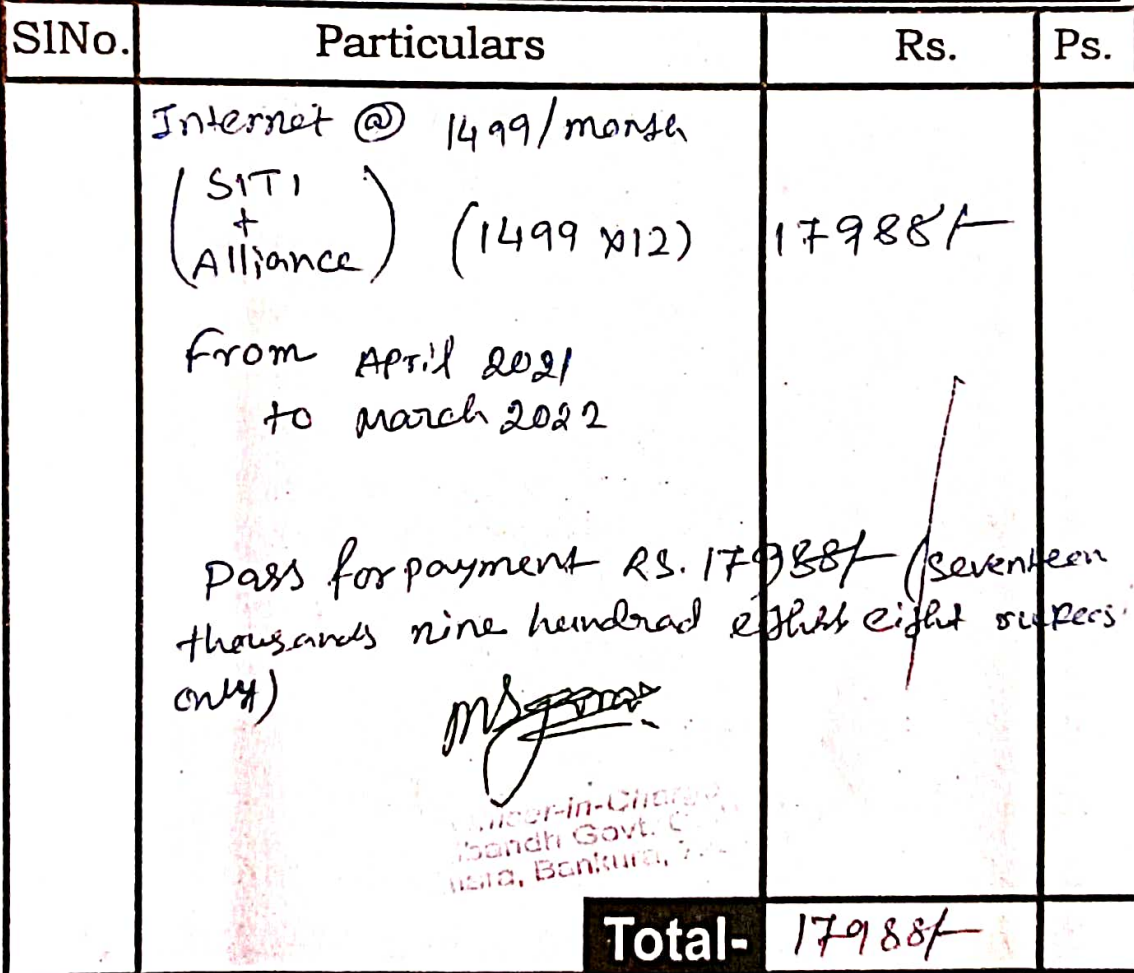 SlNo. Particulars Rs. Ps.
Internet @ 1499/month
(SITI
+
Alliance) (1499 x12) 17988/-
From April 2021
to March 2022
Pass for payment RS. 17988/- (seventeen
thousands nine hundrad eighty eight rupees
only)
-in-Char
bandh Govt. C
Bankura,
Total- 17988/-